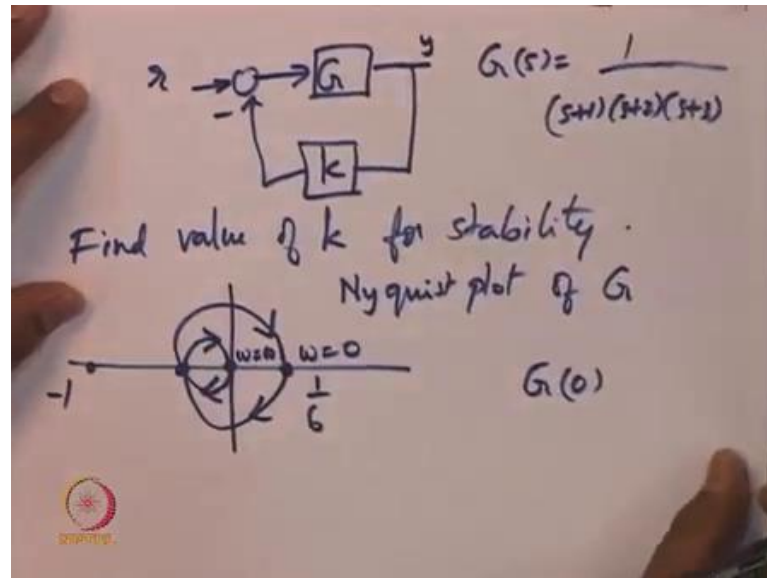 r G y G(s) = 1
- (s+1)(s+2)(s+3)
k
Find value of k for stability.
Nyquist plot of G
ω=∞ ω=0
-1 1/6 G(0)
NPTEL